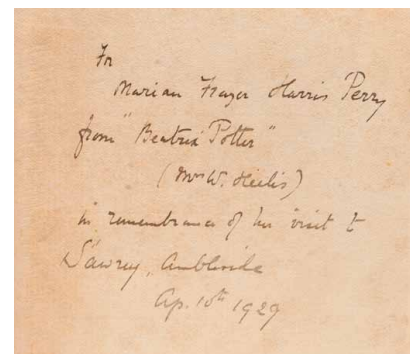 For
Marian Frazer Harris Perry
from "Beatrix Potter"
(Mrs W. Heelis)
in remembrance of her visit to
Sawrey, Ambleside
Ap. 10th 1929